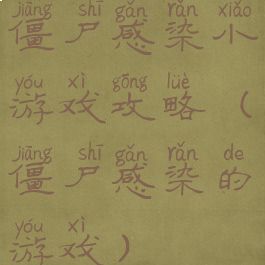 jiāng shī gǎn rǎn xiǎo
僵尸感染小
yóu xì gōng lüè
游戏攻略（
jiāng shī gǎn rǎn de
僵尸感染的
yóu xì
游戏）